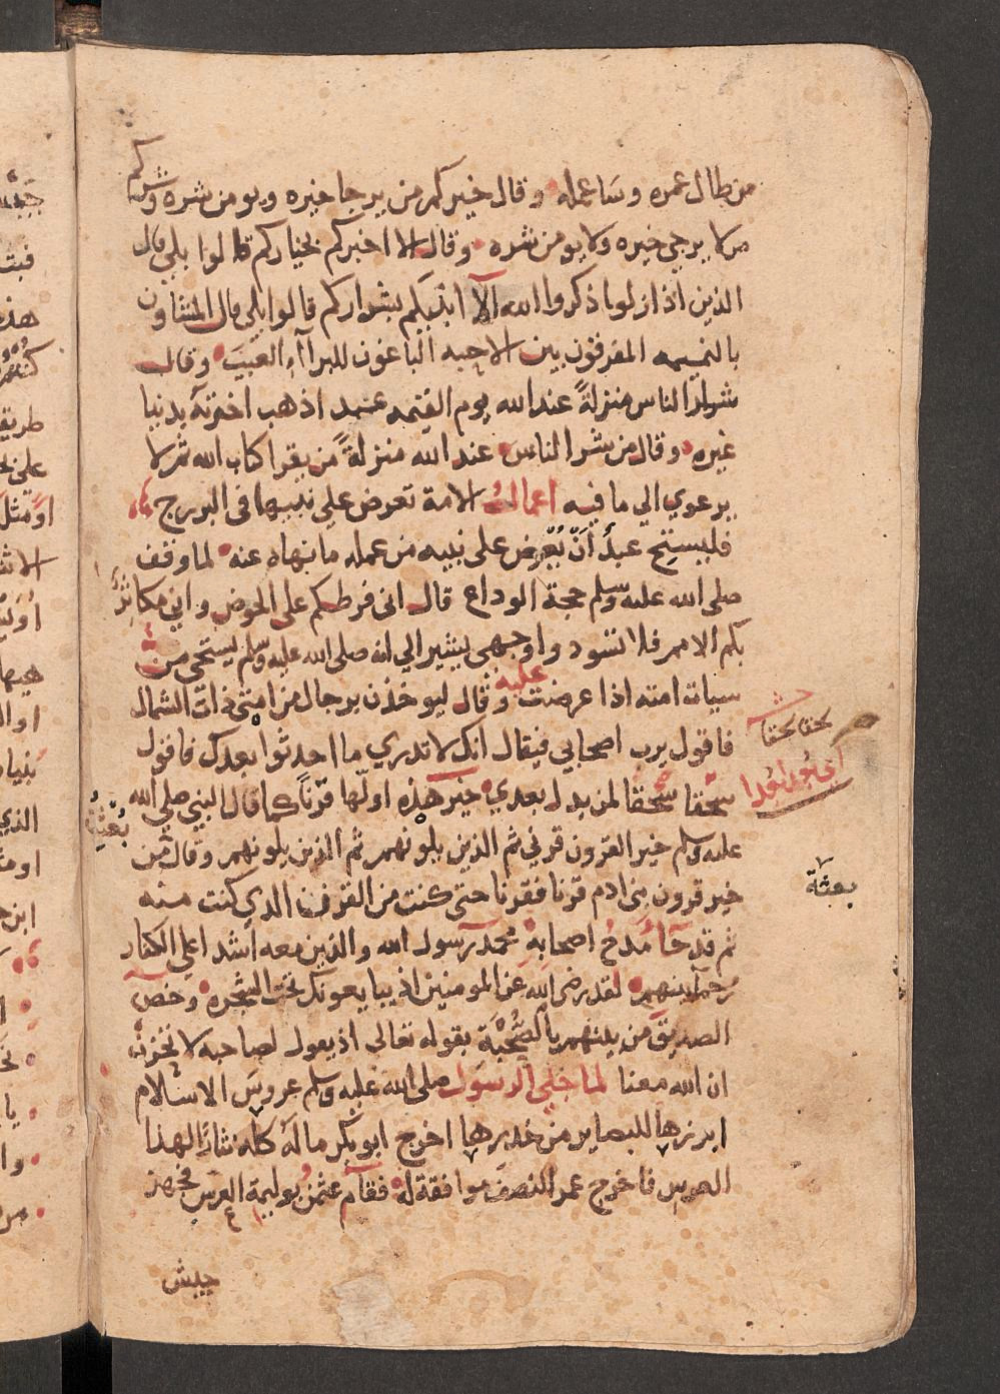 من طال عمره وسا عمله وقال خيركم من يرجا خيره ويومن شره وشركم
من لا يرجى خيره ولا يومن شره وقال الا اخبركم بخياركم قالوا بلى قال
الذين اذا زلوا ذكروا الله الا انبيكم بشراركم قالوا بلى قال المشاون
بالنميمه المفرقون بين الاحبه الباغون للبرآء العيب وقال
شرار الناس منزلةً عند الله يوم القيمه عبد اذهب اخرته بدنيا
غيره وقال من شر الناس عند الله منزلةً من يقرا كتاب الله ثم لا
يرعوي الي ما فيه اعمال الامة تعرض على نبيها في البرزج
فليستح عبدٌ أن يُعرض على نبيه من عمله ما نهاه عنه لما وقف
صلى الله عليه وسلم حجة الوداع قال انى فرطكم على الحوض واني مكاثرٌ
بكم الامم فلا تسود وا وجهى يشير الي انه صلى الله عليه وسلم يستحى من
سيات امته اذا عرضت عليه وقال ليوخذن برجال من امتى ذات الشمال
فاقول يرب اصحابي فيقال انك لا تدري ما احدثوا بعدك فاقول
سحقا سحقا لمن بدل بعدي خير هذه اولها قرنا كما قال النبي صلى الله
عليه وسلم خير القرون قرني ثم الذين يلونهم ثم الذين يلونهم وقال من
خير قرون بنى ادم قرنا فقرنا حتى كنت من القرن الذي كنت منه
ثم قد جا مدح اصحابه محمد رسول الله والذين معه اشداء على الكفار
رحمآ بينهم لقد رضى الله عن المومنين اذ يبايعونك تحت الشجره وخص
الصديق من بينهم بالصُّحْبَة بقوله تعالى اذ يقول لصاحبه لا تحزن
ان الله معنا لما جلى الرسول صلى الله عليه وسلم عروس الاسلام
ابرزها للبصاير من خدرها اخرج ابو بكر ماله كله نثارًا لهذا
العرس فاخرج عمر النصف موافقة له فقام عثمن بوليمة العرس فجهز
جيش
سحقا سحقا
اى بُعدا بُعدا
بعثة
بُعِثْتُ